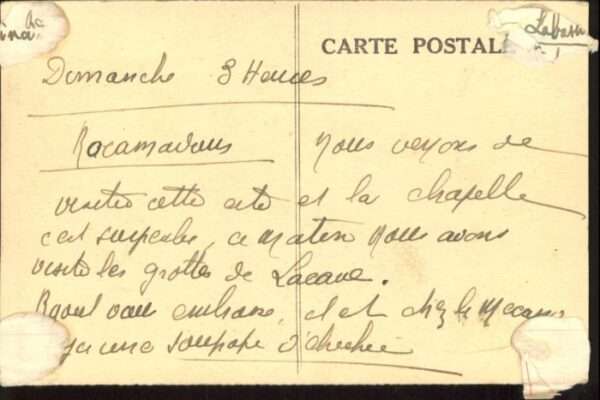 CARTE POSTALE
Dimanche 3 Heures
Rocamadour Nous venons de
visiter cette cité et la chapelle
c'est superbe, ce matin nous avons
visité les grottes de Lacave.
Raoul vous embrasse, il est chez le Mecano
une soupape